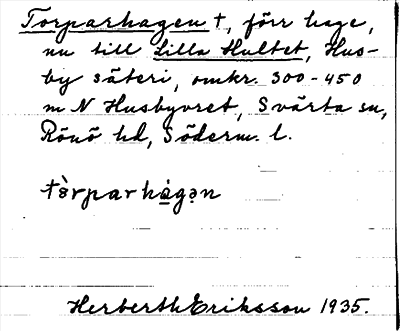 Torparhagen †, förr hage,
nu till Lilla Hultet, Hus-
by säteri, omkr. 300-450
m N Husbyvret, Svärta sn,
Rönö hd, Söderm. l.
tòrparhàgən
Herberth Eriksson 1935.